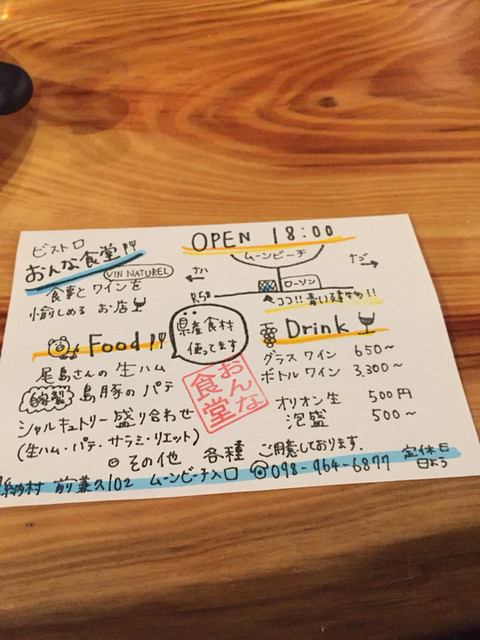 ビストロ
おんな食堂
VIN NATUREL
食事とワインを
愉しめる お店
OPEN 18:00
ムーンビーチ
ナゴ
ローソン
R58
ココ!!青い建もの!!
県産食材
使ってます
Food
尾島さんの生ハム
自家製 島豚のパテ
シャルキュトリー盛り合わせ
(生ハム・パテ・サラミ・リエット)
その他 各種 ご用意しております.
おんな
食堂
Drink
グラスワイン 650〜
ボトルワイン 3,300〜
オリオン生 500円
泡盛 500〜
納村 前兼久102 ムーンビーチ入口 098-964-6877 定休日
日よう